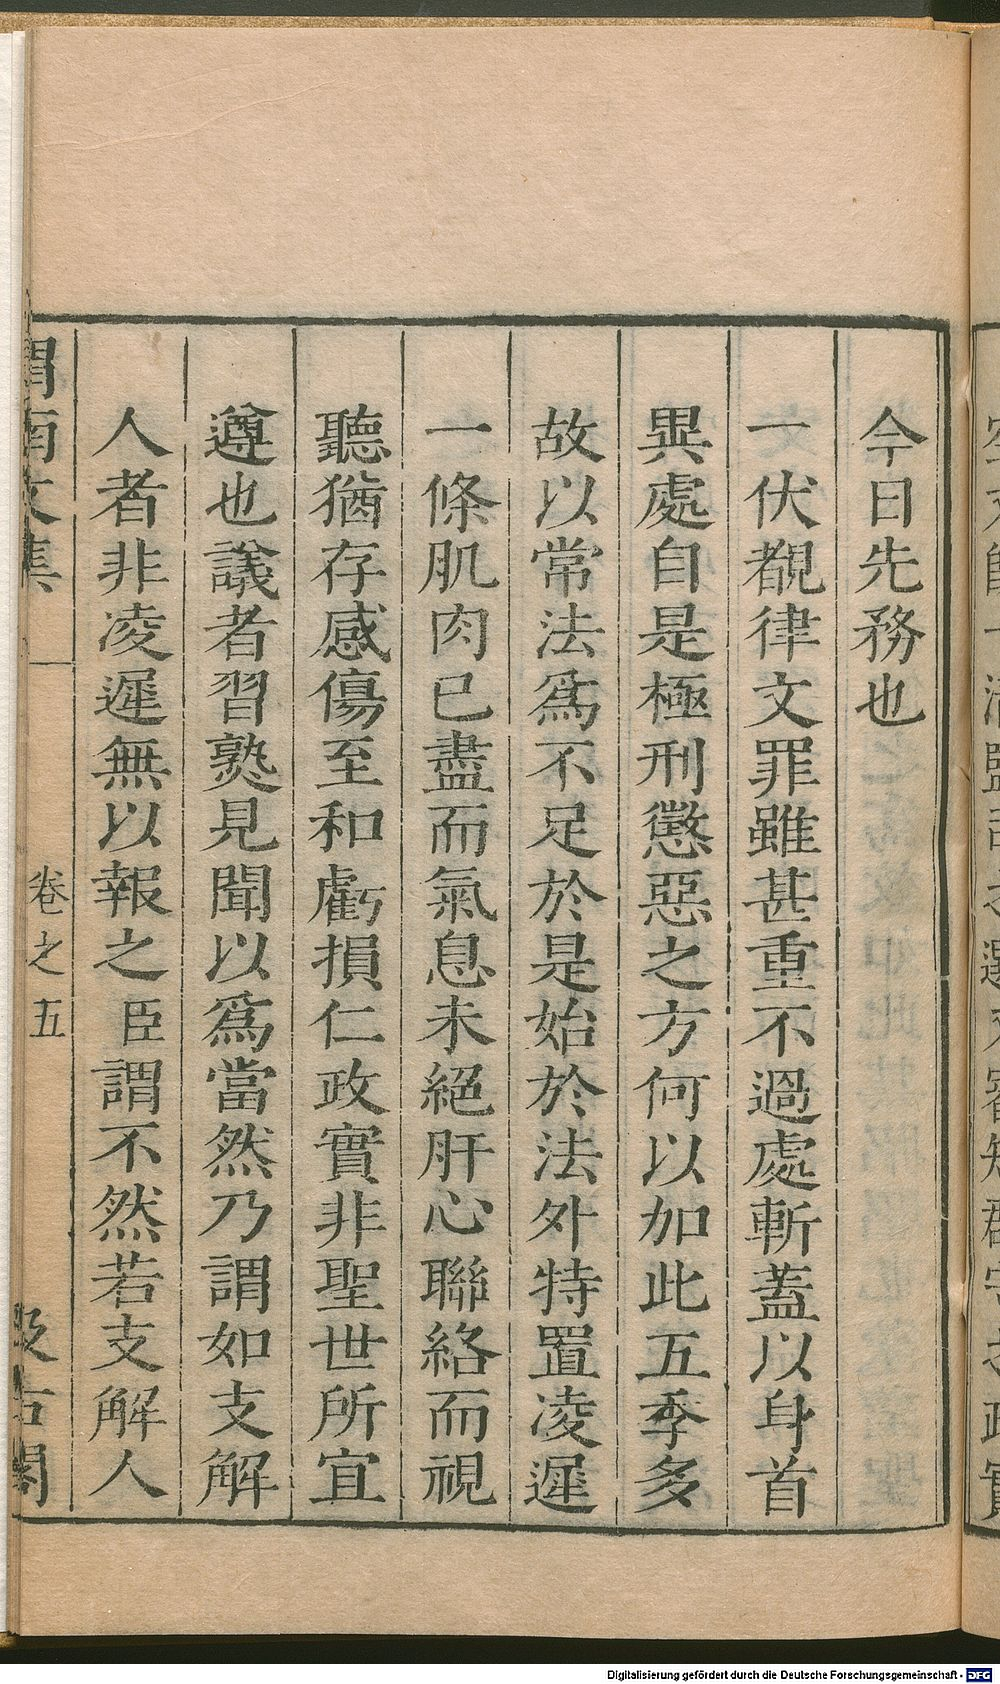 今日先務也
一伏覩律文罪雖甚重不過處斬蓋以身首
異處自是極刑懲惡之方何以加此五季多
故以常法爲不足於是始於法外特置凌遲
一條肌肉已盡而氣息未絕肝心聯絡而視
聽猶存感傷至和虧損仁政實非聖世所宜
遵也議者習熟見聞以爲當然乃謂如支解
人者非凌遲無以報之臣謂不然若支解人
渭南文集 卷之五 汲古閣
Digitalisierung gefördert durch die Deutsche Forschungsgemeinschaft - DFG